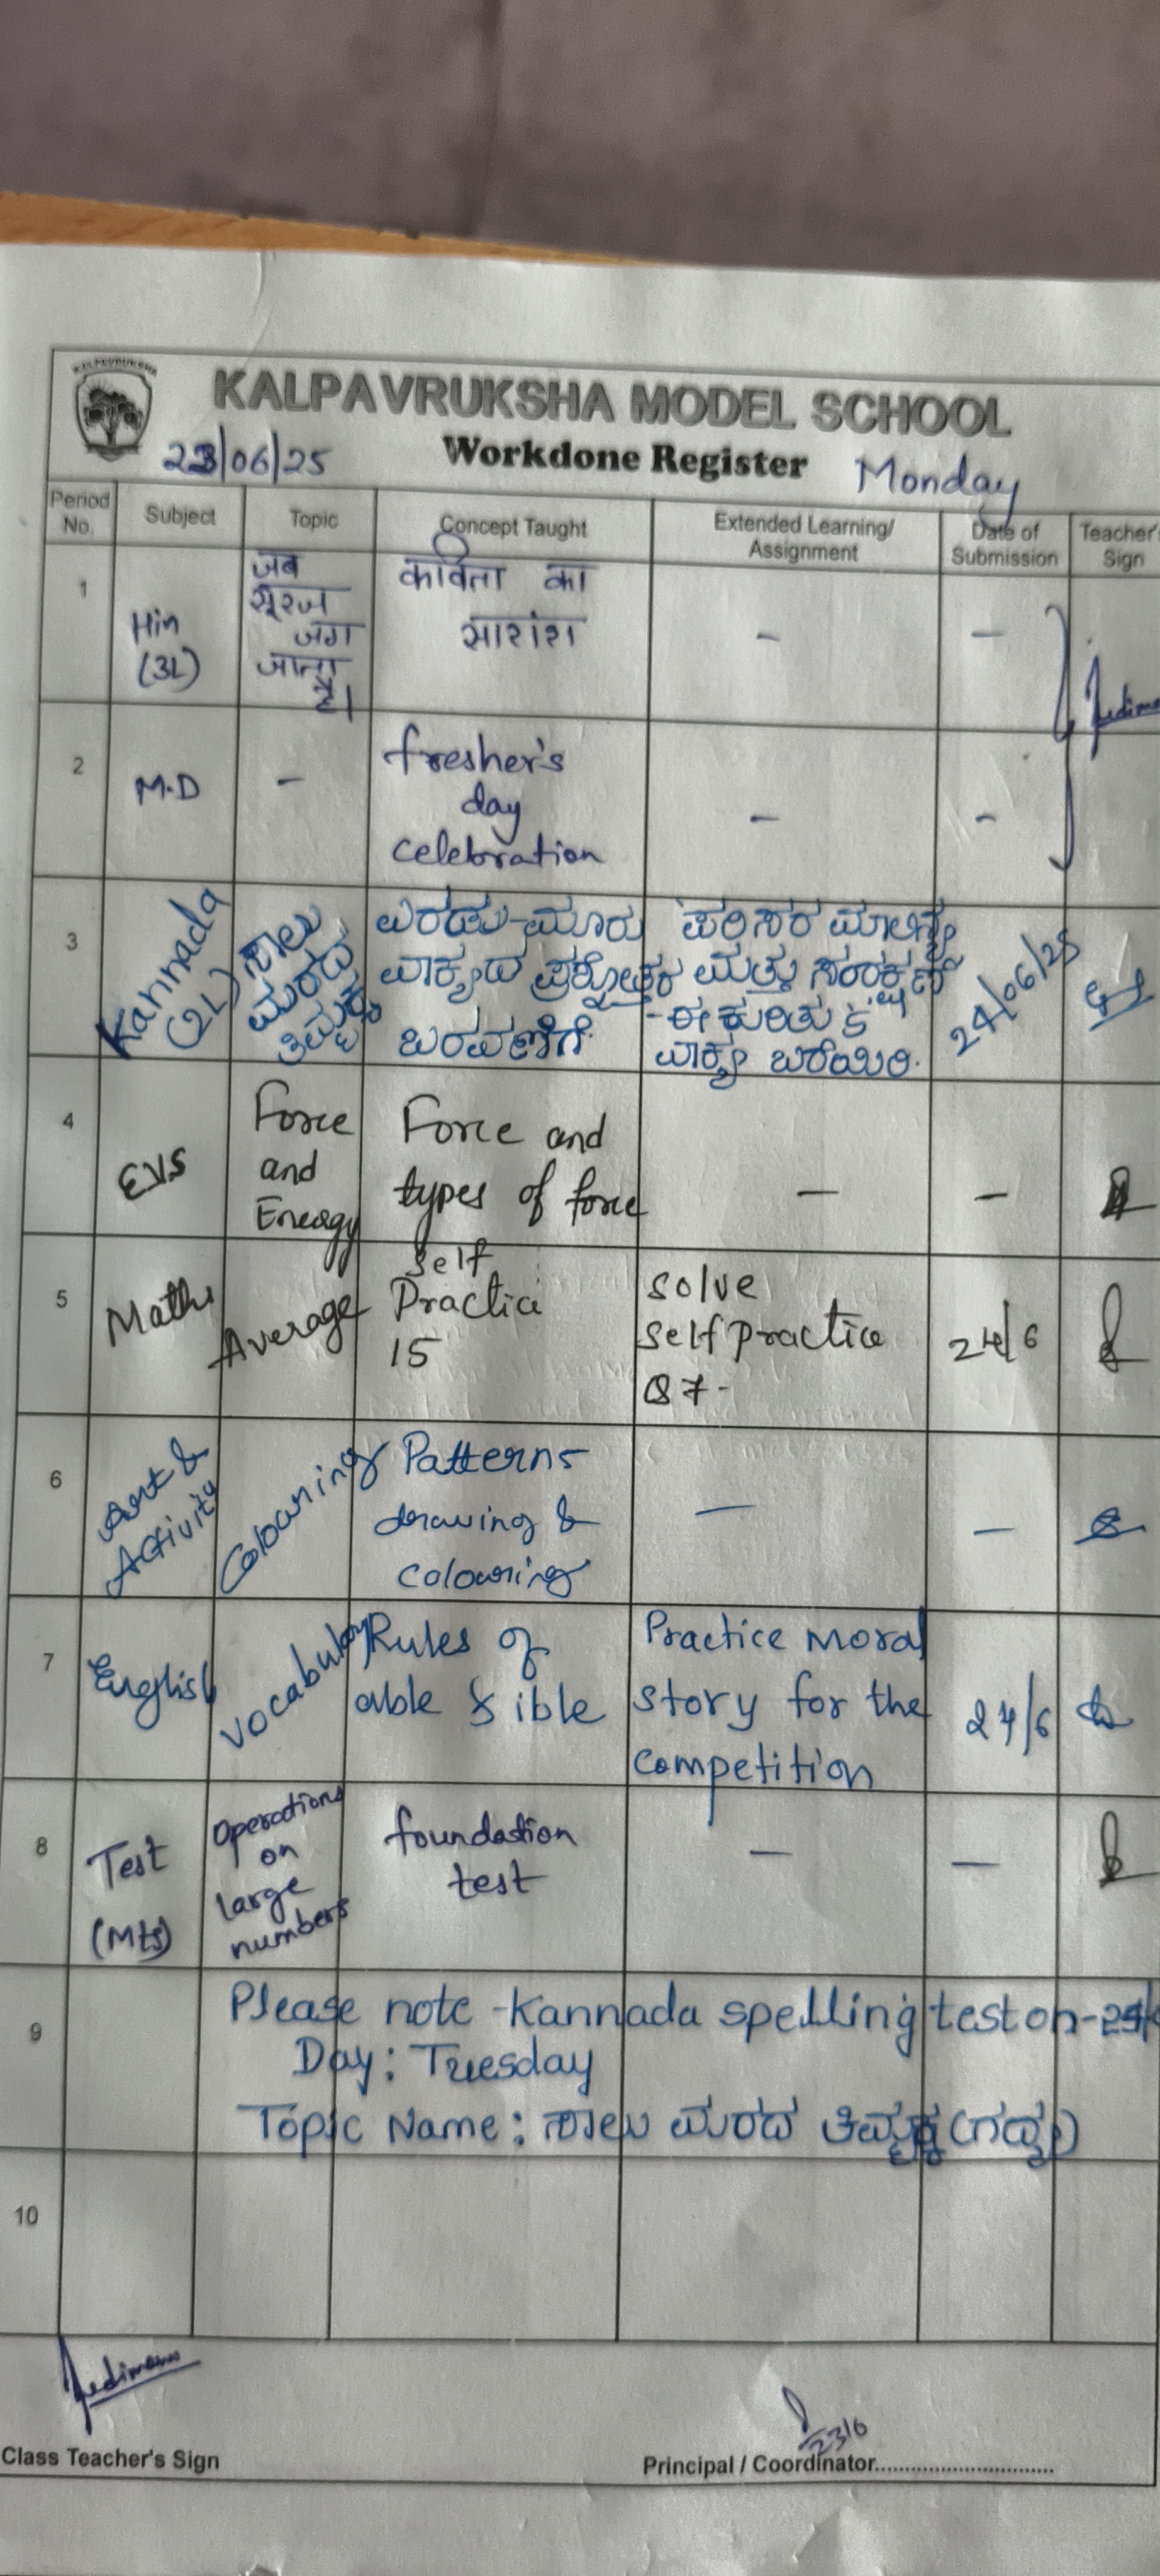 KALPAVRUKSHA
KALPAVRUKSHA MODEL SCHOOL
23/06/25 Workdone Register Monday
Period No. Subject Topic Concept Taught Extended Learning/ Assignment Date of Submission Teacher's Sign
1 Hin (3L) जब सूरज जग जाता है। कविता का सारांश - -
2 M.D - fresher's day celebration - -
3 Kannada (2L) ಸಾಲು ಮರದ ತಿಮ್ಮಕ್ಕ ಎರಡು-ಮೂರು ವಾಕ್ಯದ ಪ್ರಶ್ನೋತ್ತರ ಬರವಣಿಗೆ. ಪರಿಸರ ಮಾಲಿನ್ಯ ಮತ್ತು ಸಂರಕ್ಷಣೆ - ಈ ಕುರಿತು 5 ವಾಕ್ಯ ಬರೆಯಿರಿ. 24/06/25
4 EVS Force and Energy Force and types of force - -
5 Maths Average Self Practice 15 solve self practice Q7- 24/6
6 Art & Activity Colouring Patterns drawing & colouring - -
7 English Vocabulary Rules of able & ible Practice moral story for the competition 24/6
8 Test (Mts) Operations on large numbers foundation test - -
9 Please note -Kannada spelling test on-24/
Day: Tuesday
Topic Name: ಸಾಲು ಮರದ ತಿಮ್ಮಕ್ಕ (ಗದ್ಯ)
10
23/6
Class Teacher's Sign Principal / Coordinator..............................